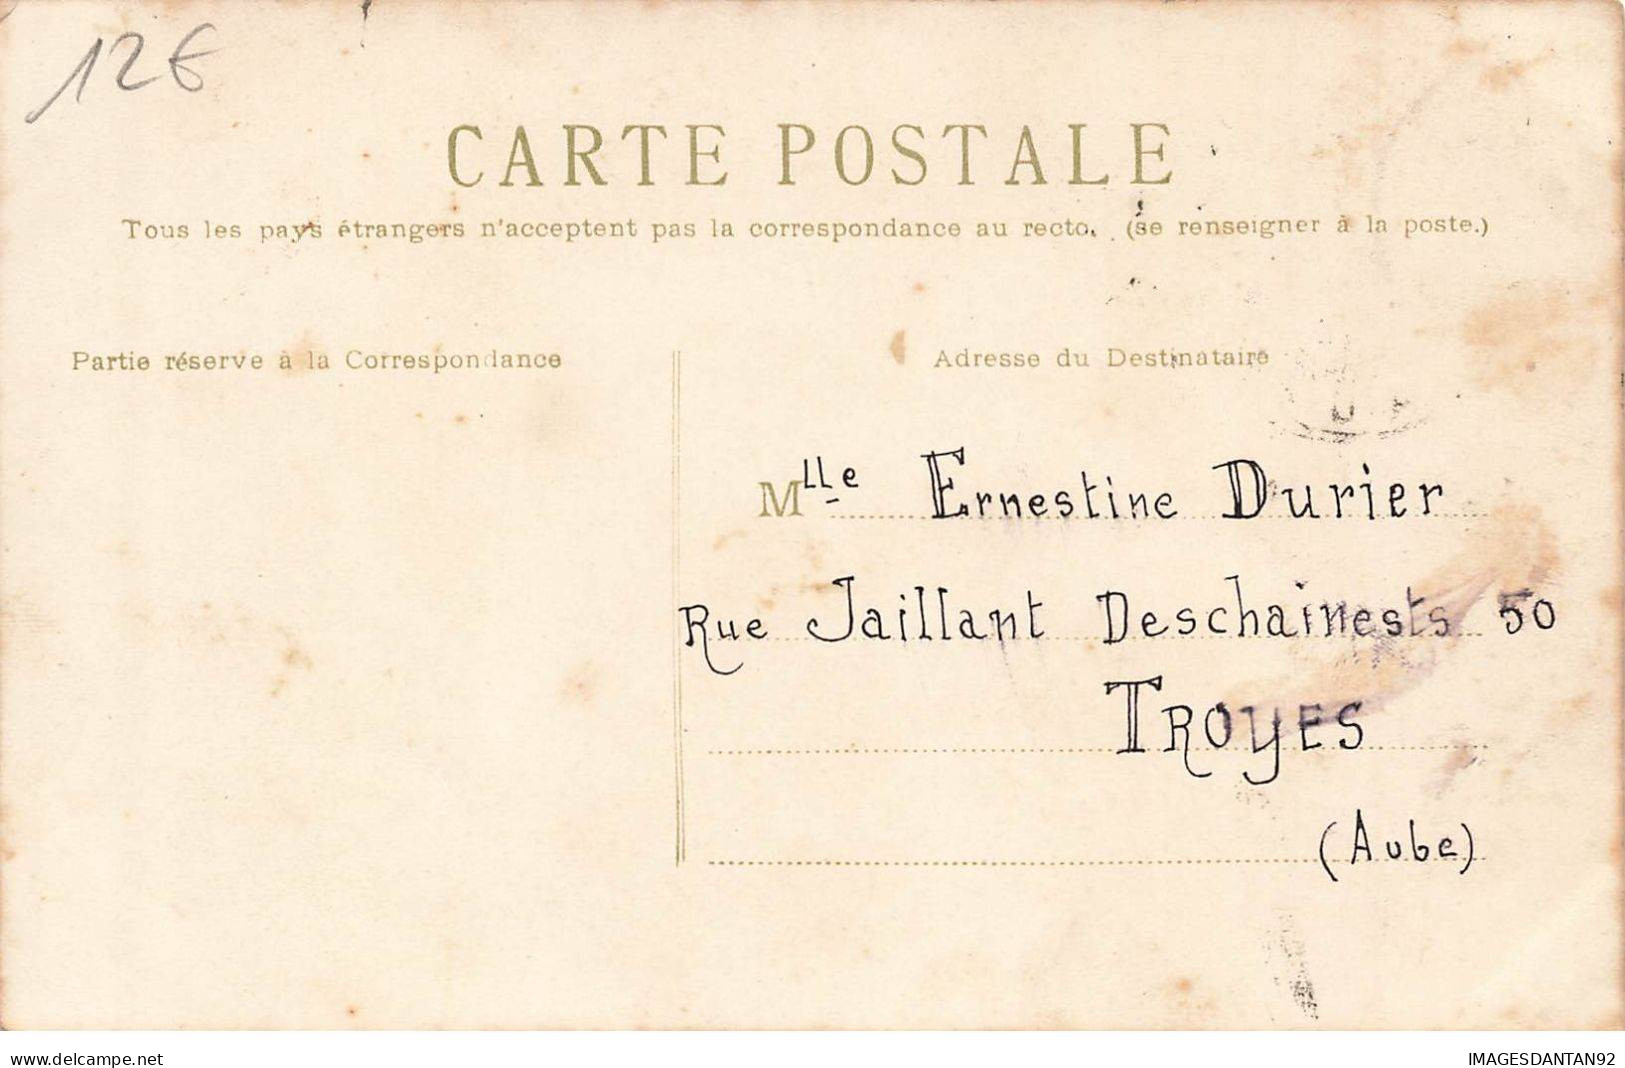 12€
CARTE POSTALE
Tous les pays étrangers n'acceptent pas la correspondance au recto. (se renseigner à la poste.)
Partie réserve à la Correspondance
Adresse du Destinataire
Mlle Ernestine Durier
Rue Jaillant Deschainests 50
TROYES
(Aube)
www.delcampe.net
IMAGESDANTAN92